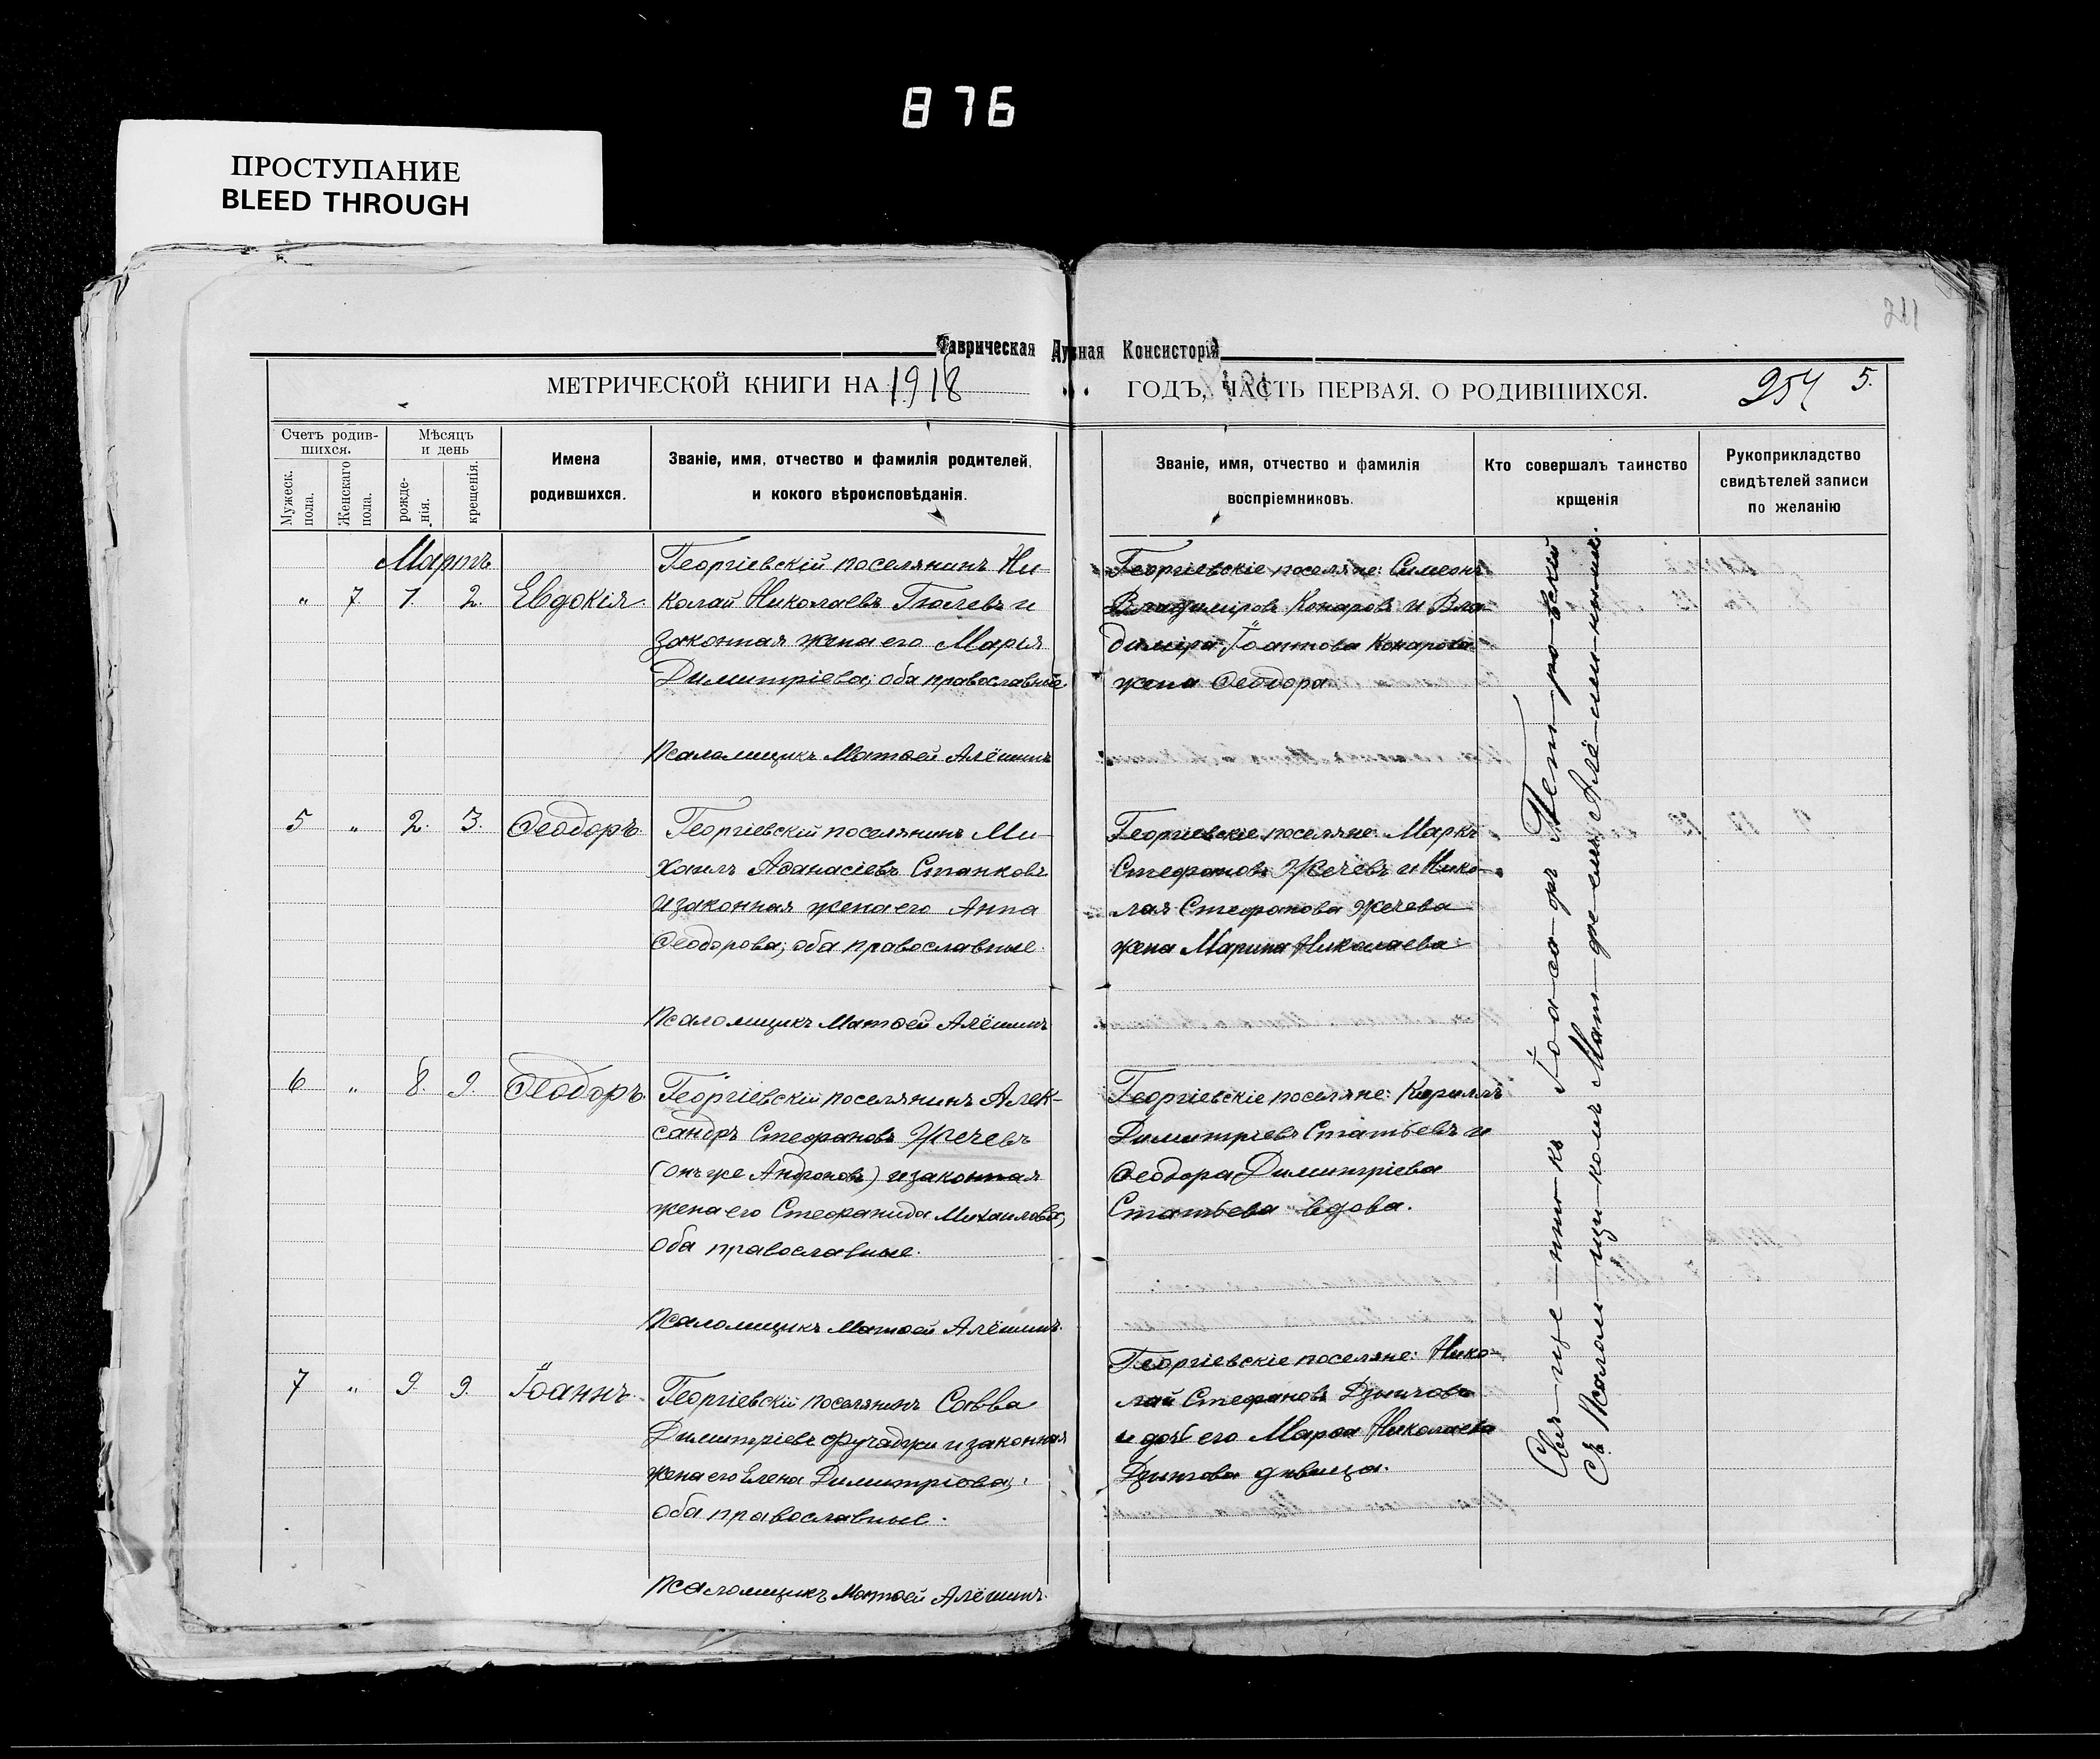 876
ПРОСТУПАНИЕ
BLEED THROUGH
211
Таврическая Духная Консисторія
МЕТРИЧЕСКОЙ КНИГИ НА 1918
ГОДЪ, ЧАСТЬ ПЕРВАЯ. О РОДИВШИХСЯ.
254 5.
Счетъ родив-
шихся.
Мужеск.
пола.
Женскаго
пола.
Мѣсяцъ
и день
рожде-
нія.
крещенія.
Имена
родившихся.
Званіе, имя, отчество и фамилія родителей,
и кокого вѣроисповѣданія.
Званіе, имя, отчество и фамилія
воспріемниковъ.
Кто совершалъ таинство
крщенія
Рукоприкладство
свидѣтелей записи
по желанію
Мартъ
" 7 1. 2. Евдокія.
Георгіевскій поселянинъ Ни-
колай Николаевъ Гюлевъ и
законная жена его Марія
Димитріева; оба православные
Псаломщикъ Матѳей Алёшинъ
Георгіевскіе поселяне: Симеонъ
Владиміровъ Конаровъ и Вла-
диміра Іоаннова Конарова
жена Ѳеодора
5 " 2. 3. Ѳеодоръ
Георгіевскій поселянинъ Ми-
хаилъ Аѳанасіевъ Станковъ
и законная жена его Анна
Ѳеодорова; оба православные.
Псаломщикъ Матѳей Алёшинъ
Георгіевскіе поселяне: Маркъ
Стефановъ Жечевъ и Нико-
лая Стефанова Жечева
жена Марина Николаева
6 " 8. 9. Ѳеодоръ.
Георгіевскій поселянинъ Алек-
сандръ Стефановъ Жечевъ
(онъ же Андроновъ) и законная
жена его Стефанида Михаилова;
оба православные.
Псаломщикъ Матѳей Алёшинъ.
Георгіевскіе поселяне: Кириллъ
Димитріевъ Статьевъ и
Ѳеодора Димитріева
Статьева вдова.
7 " 9. 9. Іоаннъ.
Георгіевскій поселянинъ Савва
Димитріевъ Фучаджи и законная
жена его Елена Димитріова;
оба православные.
Псаломщикъ Матѳей Алёшинъ.
Георгіевскіе поселяне: Нико-
лай Стефановъ Дзинговъ
и дочь его Марѳа Николаева
Дзингова дѣвица.
Свя-ще-нни-къ Іоа-са-фъ Пет-ро-вскій
Съ Псалом-щи-комъ Мат-фе-емъ Алё-ши-нымъ.